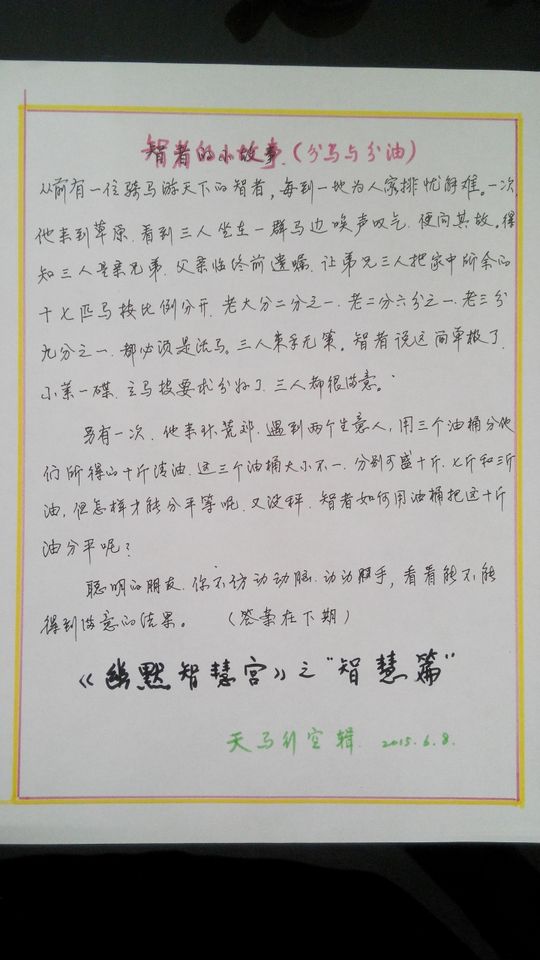 智者的小故事.(分马与分油)
从前有一位骑马游天下的智者,每到一地为人家排忧解难。一次,
他来到草原.看到三人坐在一群马边唉声叹气.便问其故.得
知三人是亲兄弟.父亲临终前遗嘱.让弟兄三人把家中所余的
十七匹马按比例分开.老大分二分之一.老二分六分之一.老三分
九分之一.都必须是活马。三人束手无策。智者说这简单极了.
小菜一碟.立马按要求分好了.三人都很满意。
另有一次.他来到荒郊.遇到两个生意人,用三个油桶分他
们所得的十斤清油.这三个油桶大小不一.分别可盛十斤.七斤和三斤
油,但怎样才能分平等呢.又没秤.智者如何用油桶把这十斤
油分平呢?
聪明的朋友.你不访动动脑.动动脚手,看看能不能
得到满意的结果。 (答案在下期)
《幽默智慧宫》之"智慧篇"
天马行空辑. 2015.6.8.